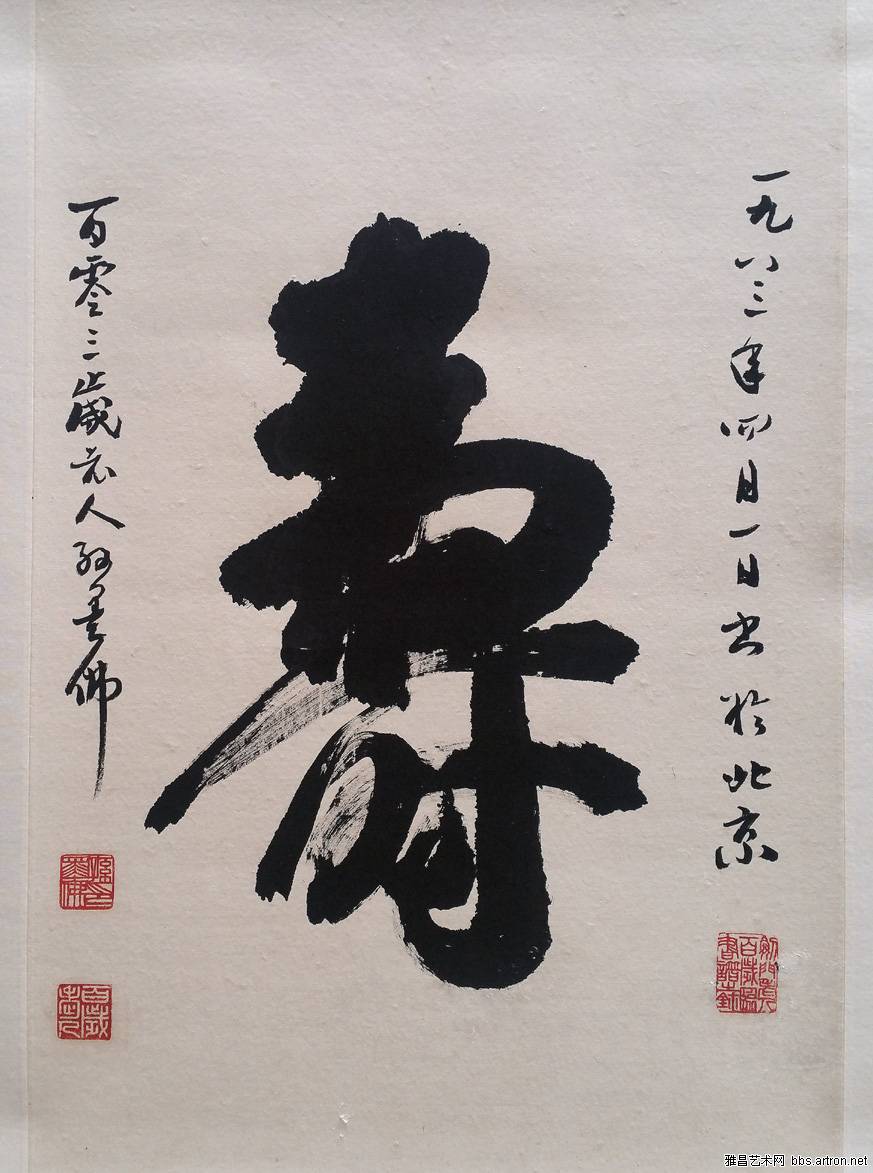 一九八三年四月一日书於北京
寿
百零三歲老人孙墨佛
雅昌艺术网 bbs.artron.net